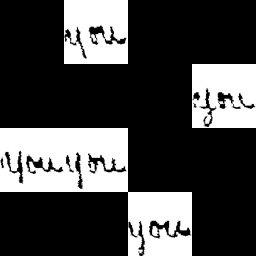 you
you
you you
you